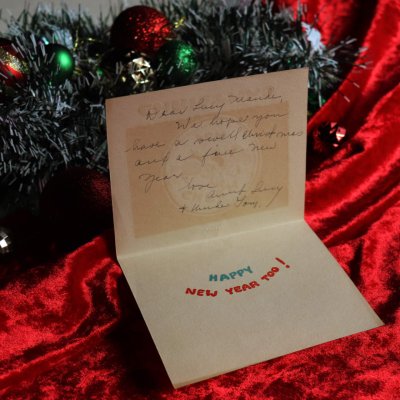 Dear Lucy Mander
We hope you
have a swell Christmas
and a fine New
Year.
love
Aunt Lucy
+ Uncle Tom
HAPPY
NEW YEAR TOO!